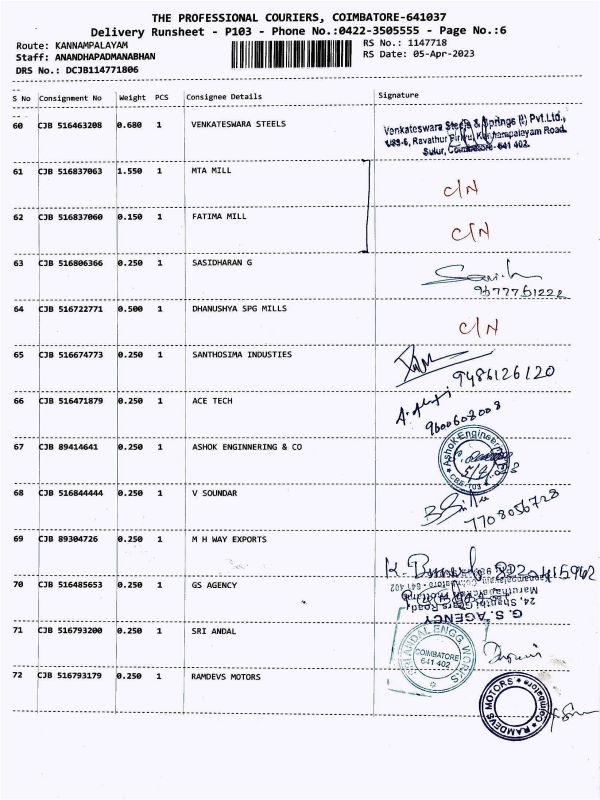 THE PROFESSIONAL COURIERS, COIMBATORE-641037
Delivery Runsheet - P103 - Phone No.:0422-3505555 - Page No.:6
Route: KANNAMPALAYAM RS No.: 1147718
Staff: ANANDHAPADMANABHAN RS Date: 05-Apr-2023
DRS No.: DCJB114771806
S No Consignment No Weight PCS Consignee Details Signature
60 CJB 516463208 0.680 1 VENKATESWARA STEELS
Venkateswara Steels & Springs (I) Pvt.Ltd.,
Ravathur Kannampalayam Road,
Sulur, Coimbatore- 641 402.
61 CJB 516837063 1.550 1 MTA MILL C/N
62 CJB 516837060 0.150 1 FATIMA MILL C/N
63 CJB 516806366 0.250 1 SASIDHARAN G
9677761222
64 CJB 516722771 0.500 1 DHANUSHYA SPG MILLS C/N
65 CJB 516674773 0.250 1 SANTHOSIMA INDUSTIES
9486126120
66 CJB 516471879 0.250 1 ACE TECH
9600608008
67 CJB 89414641 0.250 1 ASHOK ENGINNERING & CO
Ashok Engineering
68 CJB 516844444 0.250 1 V SOUNDAR
7708056728
69 CJB 89304726 0.250 1 M H WAY EXPORTS
70 CJB 516485653 0.250 1 GS AGENCY
G.S. AGENCY
24, Shanthi Gears Road,
71 CJB 516793200 0.250 1 SRI ANDAL
SRI ANDAL ENGG WORKS
COIMBATORE
641 402
72 CJB 516793179 0.250 1 RAMDEVS MOTORS
RAMDEVS MOTORS Coimbatore